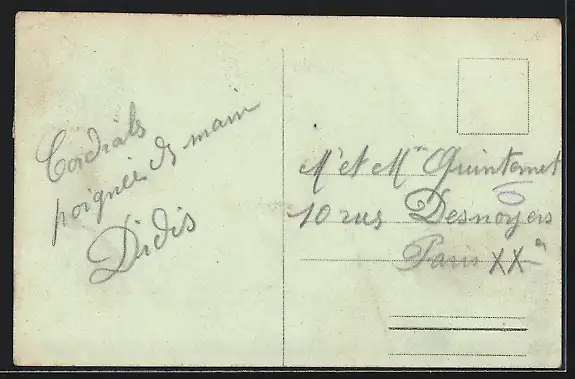 Cordiale
poignée de main
Didis
Mr et Mme Quintemet
10 rue Desnoyers
Paris XXe